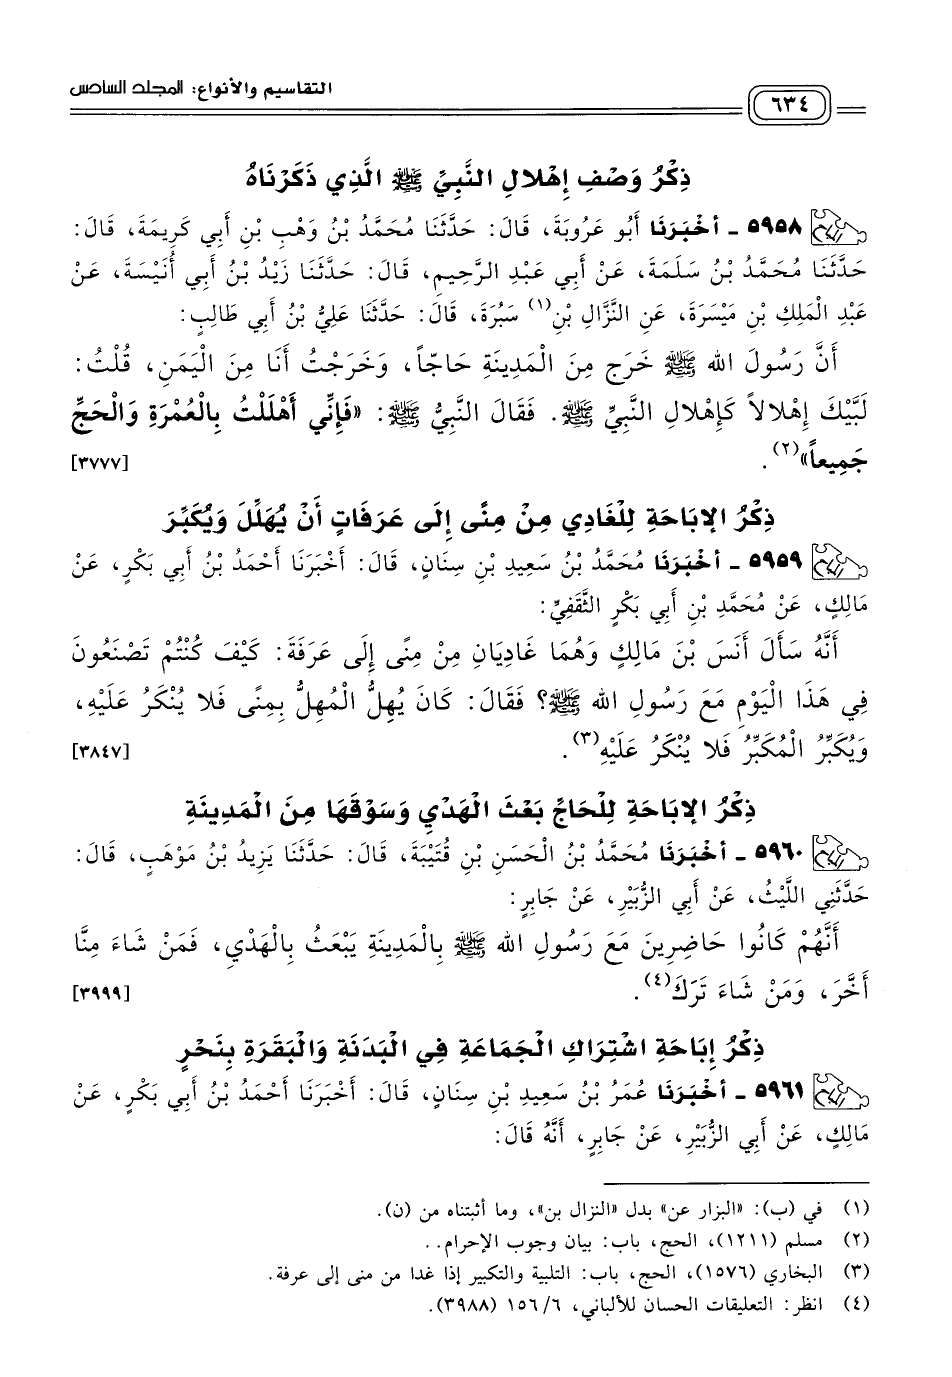 التقاسيم والأنواع: المجلد السادس
٦٣٤
ذِكْرُ وَصْفِ إِهْلالِ النَّبِيِّ ﷺ الَّذِي ذَكَرْنَاهُ
٥٩٥٨ - أخْبَرَنَا أَبُو عَرُوبَةَ، قَالَ: حَدَّثَنَا مُحَمَّدُ بْنُ وَهْبِ بْنِ أَبِي كَرِيمَةَ، قَالَ:
حَدَّثَنَا مُحَمَّدُ بْنُ سَلَمَةَ، عَنْ أَبِي عَبْدِ الرَّحِيمِ، قَالَ: حَدَّثَنَا زَيْدُ بْنُ أَبِي أُنَيْسَةَ، عَنْ
عَبْدِ الْمَلِكِ بْنِ مَيْسَرَةَ، عَنِ النَّزَّالِ بْنِ(١) سَبُرَةَ، قَالَ: حَدَّثَنَا عَلِيُّ بْنُ أَبِي طَالِبٍ:
أَنَّ رَسُولَ الله ﷺ خَرَجَ مِنَ الْمَدِينَةِ حَاجّاً، وَخَرَجْتُ أَنَا مِنَ الْيَمَنِ، قُلْتُ:
لَبَّيْكَ إِهْلالاً كَإِهْلالِ النَّبِيِّ ﷺ. فَقَالَ النَّبِيُّ ﷺ: «فَإِنِّي أَهْلَلْتُ بِالْعُمْرَةِ وَالْحَجِّ
جَمِيعاً»(٢). [٣٧٧٧]
ذِكْرُ الإبَاحَةِ لِلْغَادِي مِنْ مِنًى إِلَى عَرَفَاتٍ أَنْ يُهَلِّلَ وَيُكَبِّرَ
٥٩٥٩ - أخْبَرَنَا مُحَمَّدُ بْنُ سَعِيدِ بْنِ سِنَانٍ، قَالَ: أَخْبَرَنَا أَحْمَدُ بْنُ أَبِي بَكْرٍ، عَنْ
مَالِكٍ، عَنْ مُحَمَّدِ بْنِ أَبِي بَكْرٍ الثَّقَفِيِّ:
أَنَّهُ سَأَلَ أَنَسَ بْنَ مَالِكٍ وَهُمَا غَادِيَانِ مِنْ مِنًى إِلَى عَرَفَةَ: كَيْفَ كُنْتُمْ تَصْنَعُونَ
فِي هَذَا الْيَوْمِ مَعَ رَسُولِ الله ﷺ؟ فَقَالَ: كَانَ يُهِلُّ الْمُهِلُّ بِمِنًى فَلا يُنْكَرُ عَلَيْهِ،
وَيُكَبِّرُ الْمُكَبِّرُ فَلا يُنْكَرُ عَلَيْهِ(٣). [٣٨٤٧]
ذِكْرُ الإبَاحَةِ لِلْحَاجِّ بَعْثَ الْهَدْيِ وَسَوْقَهَا مِنَ الْمَدِينَةِ
٥٩٦٠ - أخْبَرَنَا مُحَمَّدُ بْنُ الْحَسَنِ بْنِ قُتَيْبَةَ، قَالَ: حَدَّثَنَا يَزِيدُ بْنُ مَوْهَبٍ، قَالَ:
حَدَّثَنِي اللَّيْثُ، عَنْ أَبِي الزُّبَيْرِ، عَنْ جَابِرٍ:
أَنَّهُمْ كَانُوا حَاضِرِينَ مَعَ رَسُولِ الله ﷺ بِالْمَدِينَةِ يَبْعَثُ بِالْهَدْيِ، فَمَنْ شَاءَ مِنَّا
أَخَّرَ، وَمَنْ شَاءَ تَرَكَ(٤). [٣٩٩٩]
ذِكْرُ إِبَاحَةِ اشْتِرَاكِ الْجَمَاعَةِ فِي الْبَدَنَةِ وَالْبَقَرَةِ بِنَحْرٍ
٥٩٦١ - أخْبَرَنَا عُمَرُ بْنُ سَعِيدِ بْنِ سِنَانٍ، قَالَ: أَخْبَرَنَا أَحْمَدُ بْنُ أَبِي بَكْرٍ، عَنْ
مَالِكٍ، عَنْ أَبِي الزُّبَيْرِ، عَنْ جَابِرٍ، أَنَّهُ قَالَ:
(١) في (ب): «البزار عن» بدل «النزال بن»، وما أثبتناه من (ن).
(٢) مسلم (١٢١١)، الحج، باب: بيان وجوب الإحرام..
(٣) البخاري (١٥٧٦)، الحج، باب: التلبية والتكبير إذا غدا من منى إلى عرفة.
(٤) انظر: التعليقات الحسان للألباني، ٦/ ١٥٦ (٣٩٨٨).